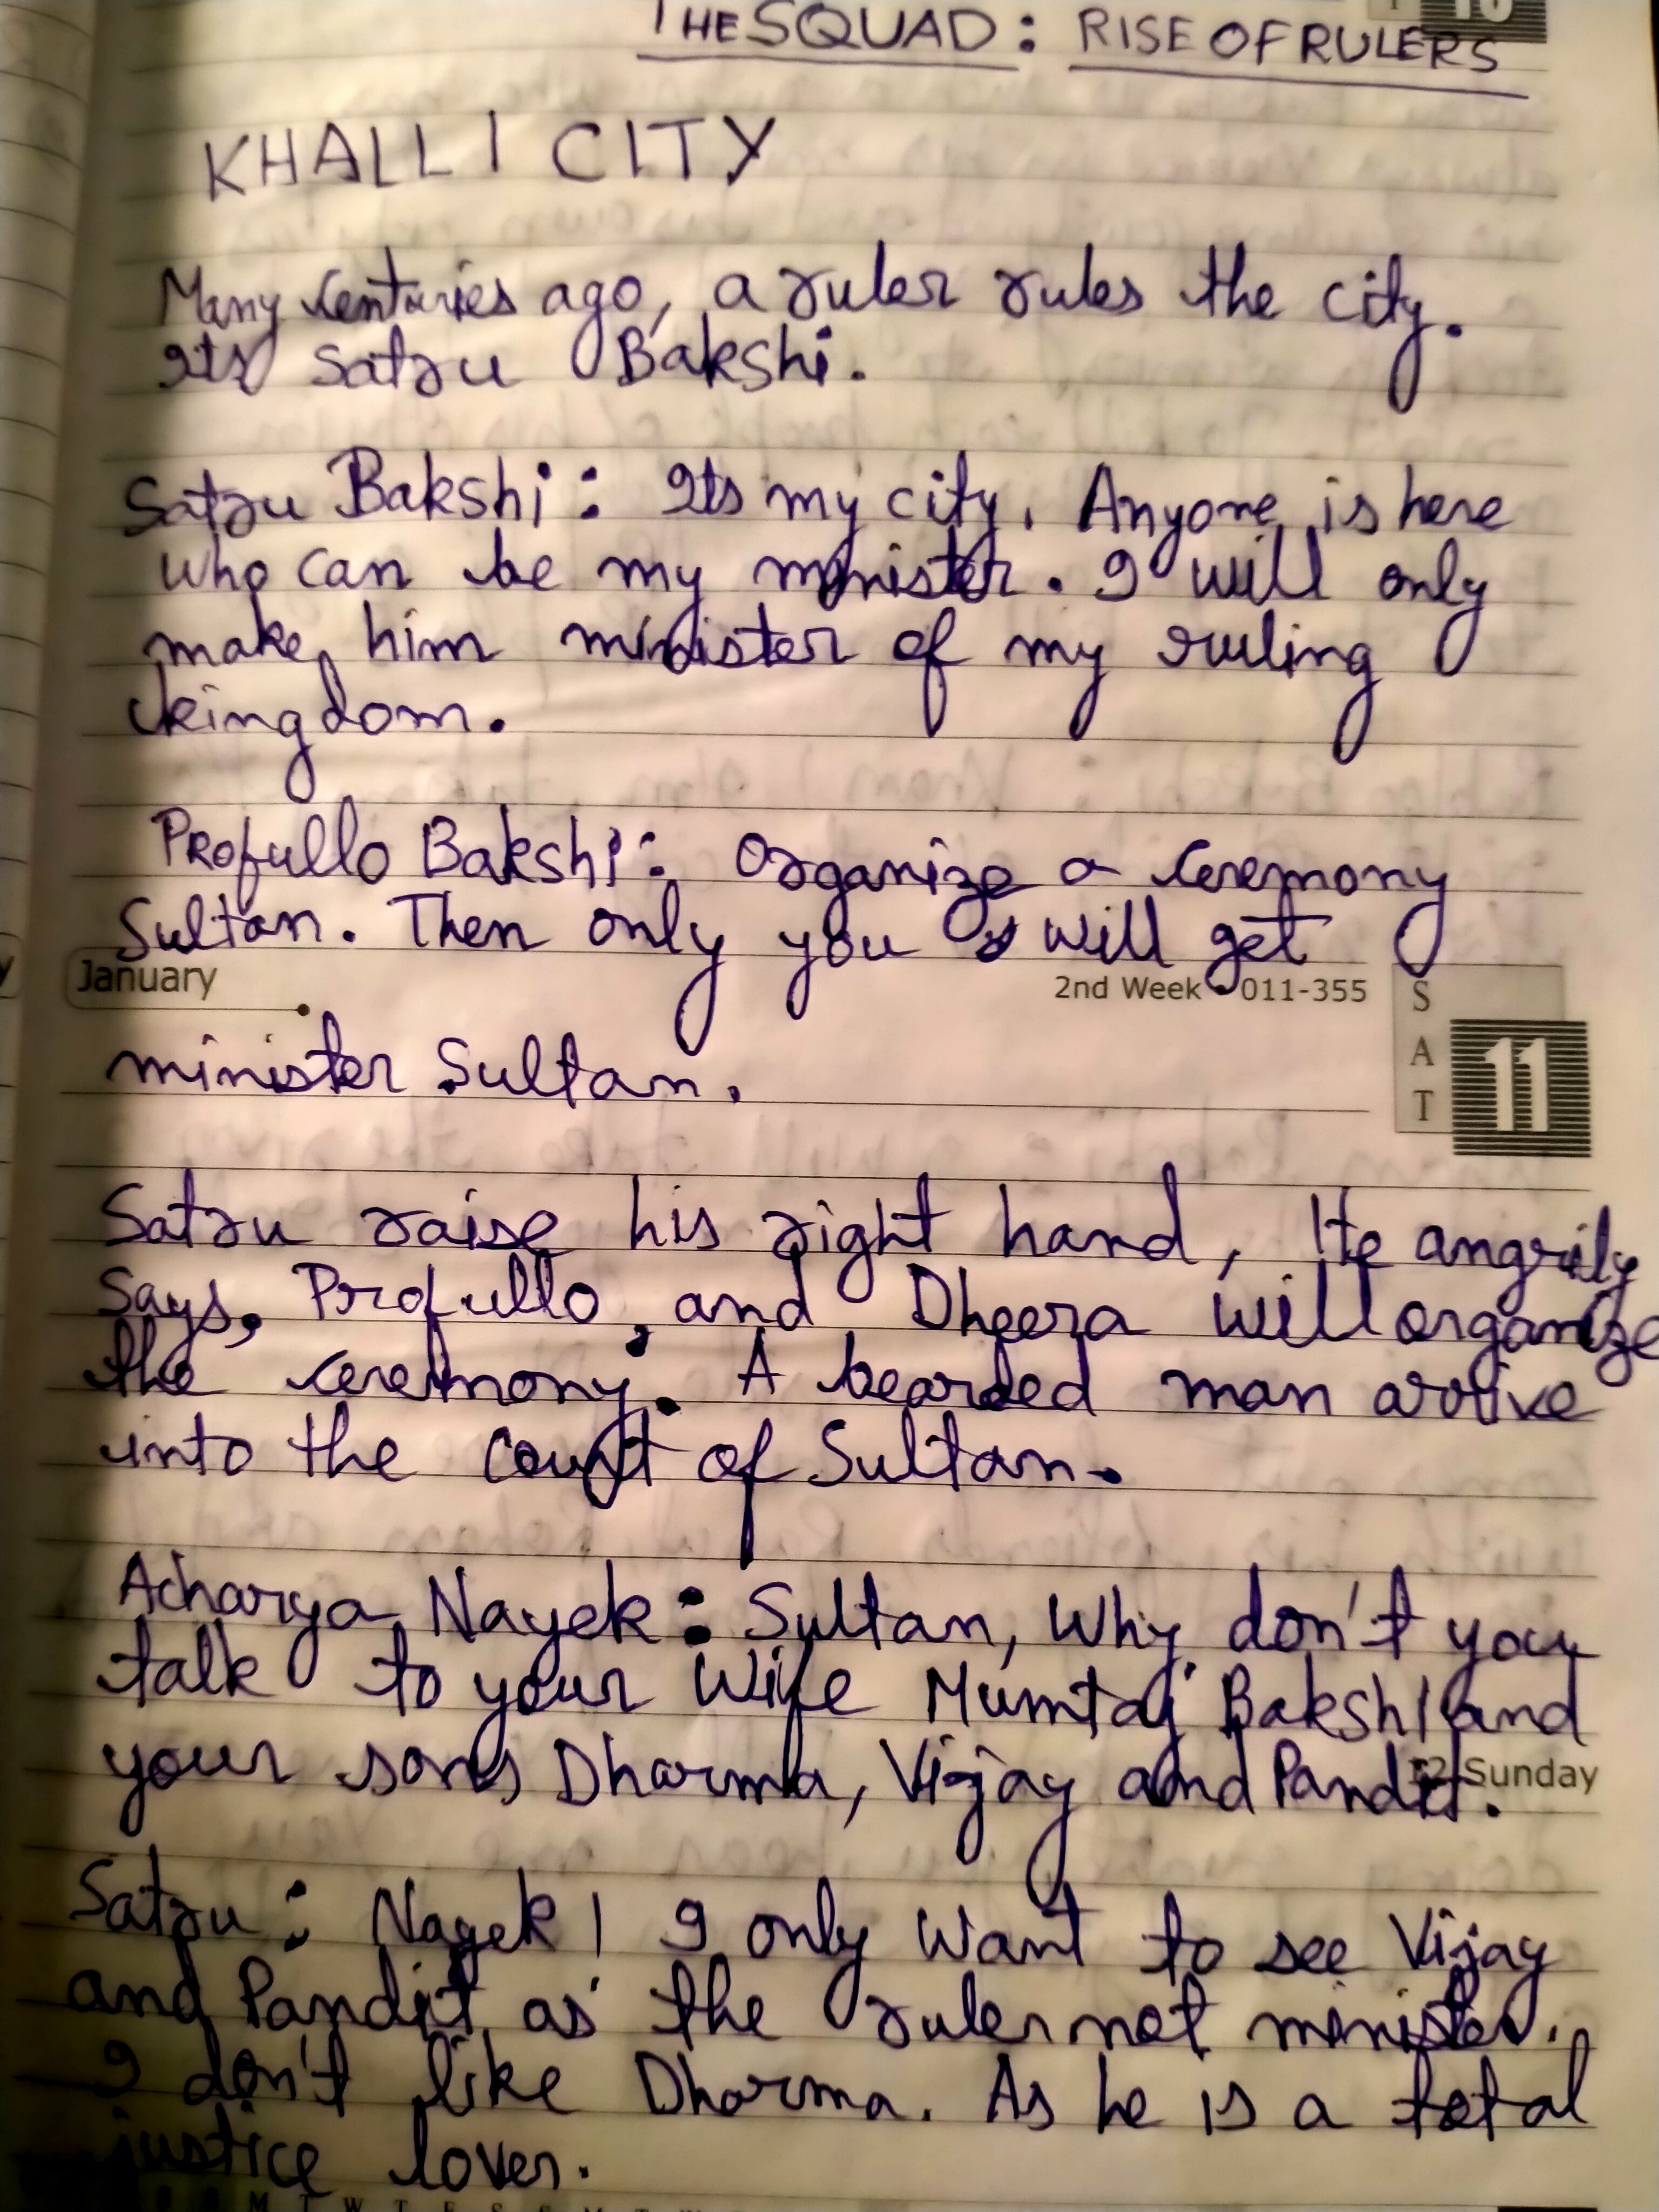 THE SQUAD: RISE OF RULERS
10
KHALLI CITY
Many centuries ago, a ruler rules the city.
Its Satru Bakshi.
Satru Bakshi: Its my city. Anyone is here
who can be my minister. I will only
make him minister of my ruling
kingdom.
Profullo Bakshi: Organize a ceremony
Sultan. Then only you will get
January 2nd Week • 011-355 SAT 11
minister Sultan.
Satru raise his right hand, He angrily
says, Profullo, and Dheera will organize
the ceremony. A bearded man arrive
into the court of Sultan.
Acharya Nayek: Sultan, Why don't you
talk to your wife Mumtaj Bakshi and
your sons Dharma, Vijay and Pandit.
12 Sunday
Satru: Nayek! I only want to see Vijay
and Pandit as the ruler not minister.
I don't like Dharma. As he is a total
justice lover.